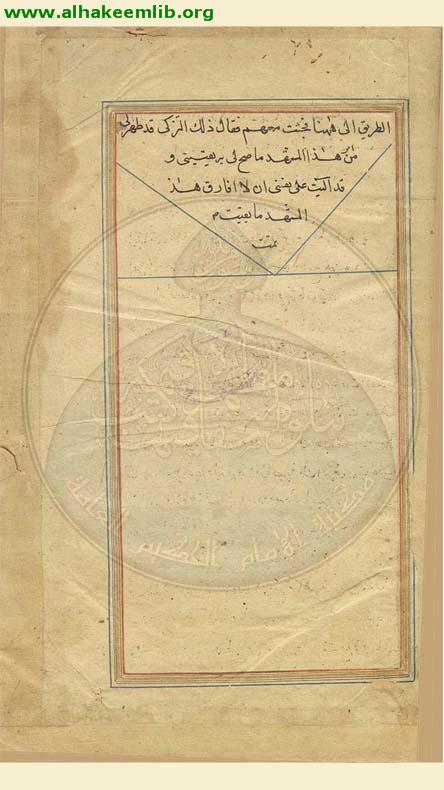 www.alhakeemlib.org
الطريق الى ههنا فجئت معهم فقال ذلك التركى قد ظهر لى
من هذا المشهد ما صح لى به يقينى و
قد آليت على نفسى ان لا افارق هذا
المشهد ما بقيت م
تمت
مكتبة الإمام الحكيم العامة